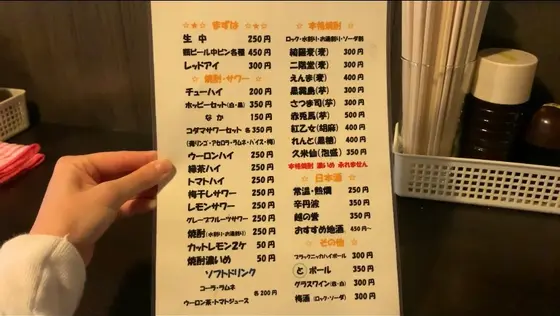 ☆★☆ まずは ☆★☆
生 中 250円
瓶ビール中ビン各種 450円
レッドアイ 300円
☆ 焼酎・サワー ☆
チューハイ 200円
ホッピーセット(白・黒) 350円
なか 150円
コダマサワーセット 各350円
(青リンゴ・アセロラ・ラムネ・バイス・梅)
ウーロンハイ 250円
緑茶ハイ 250円
トマトハイ 250円
梅干しサワー 250円
レモンサワー 250円
グレープフルーツサワー 250円
焼酎(水割り・お湯割り) 250円
カットレモン2ケ 50円
焼酎濃いめ 50円
ソフトドリンク
コーラ・ラムネ 各200円
ウーロン茶・トマトジュース
☆ 本格焼酎 ☆
ロック・水割り・お湯割り・ソーダ割
綾羅麦(麦) 300円
二階堂(麦) 300円
えんま(麦) 400円
黒霧島(芋) 300円
さつま司(芋) 300円
赤兎馬(芋) 500円
紅乙女(胡麻) 400円
れんと(黒糖) 400円
久米仙(泡盛) 350円
本格焼酎 濃いめ 承れません
☆ 日本酒 ☆
常温・熱燗 250円
辛丹波 350円
越の誉 350円
おすすめ地酒 450円~
☆ その他 ☆
ブラックニッカハイボール 300円
とボール 350円
グラスワイン(赤・白) 300円
梅酒(ロック・ソーダ) 300円